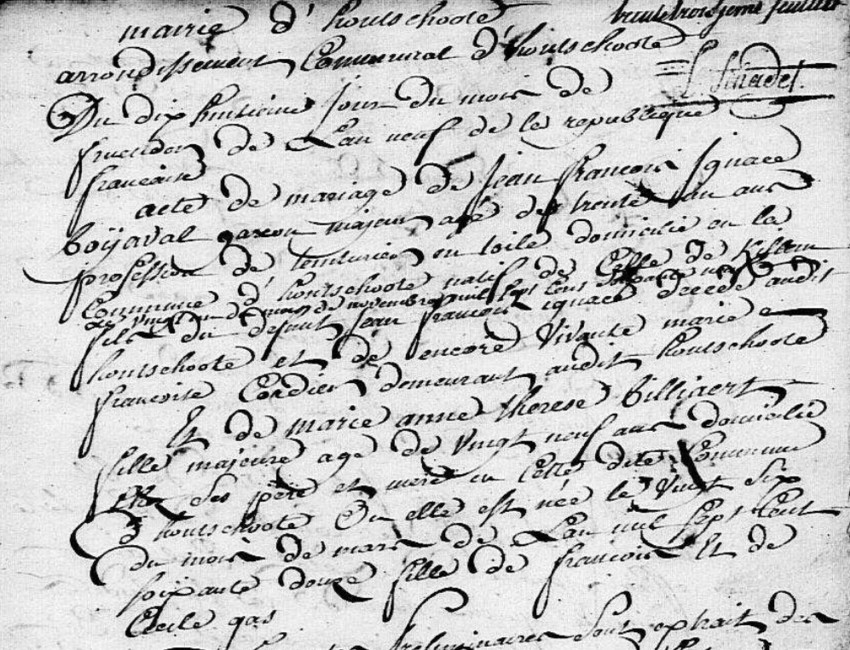 mairie d'houtschoote
trente troisieme feuillet
arrondissement Communal d'houtschoote
Du dix huitieme Jour du mois de
fructidor de L'an neuf de la republique
francaise
acte de mariage de Jean francois Ignace
boÿaval garcon majeur agé de trente un ans
profession de teinturier en toile domicilié en la
Commune d'houtschoote natif de Celle de Killem
le vingt un du mois de novembre mil sept cens
fils du defunt Jean francois ignace decedé audit
houtschoote et de encore Vivante marie
francoise Cordier demeurant audit houtschoote
Et de marie anne therese billiaert
fille majeure age de Vingt neuf ans domicilié
chez Ses père et mere en Cette dite Commune
d'houtschoote Ou elle est née le Vingt Six
du mois de mars de L'an mil Sept Cent
soixante douze fille de francois Et de
Cecile gas
preliminaires Sont extrait des